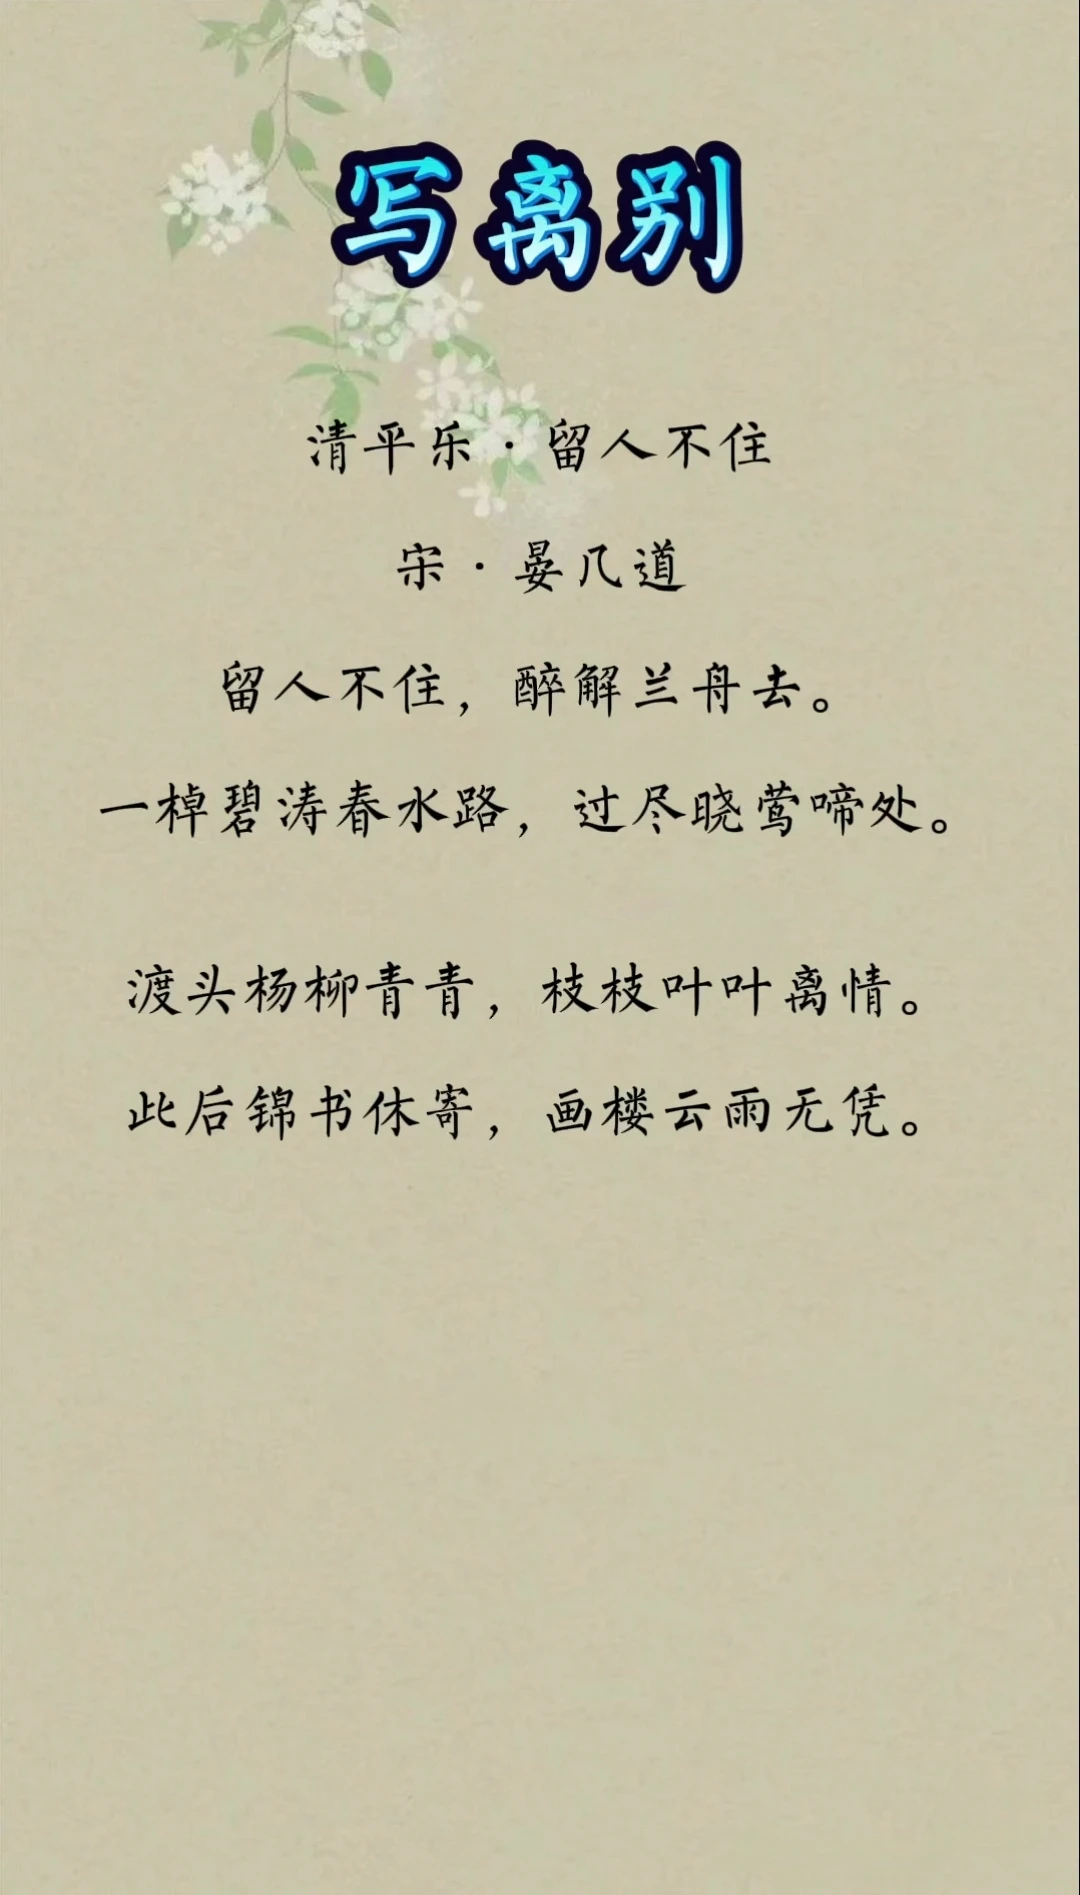 写离别
清平乐·留人不住
宋·晏几道
留人不住，醉解兰舟去。
一棹碧涛春水路，过尽晓莺啼处。
渡头杨柳青青，枝枝叶叶离情。
此后锦书休寄，画楼云雨无凭。